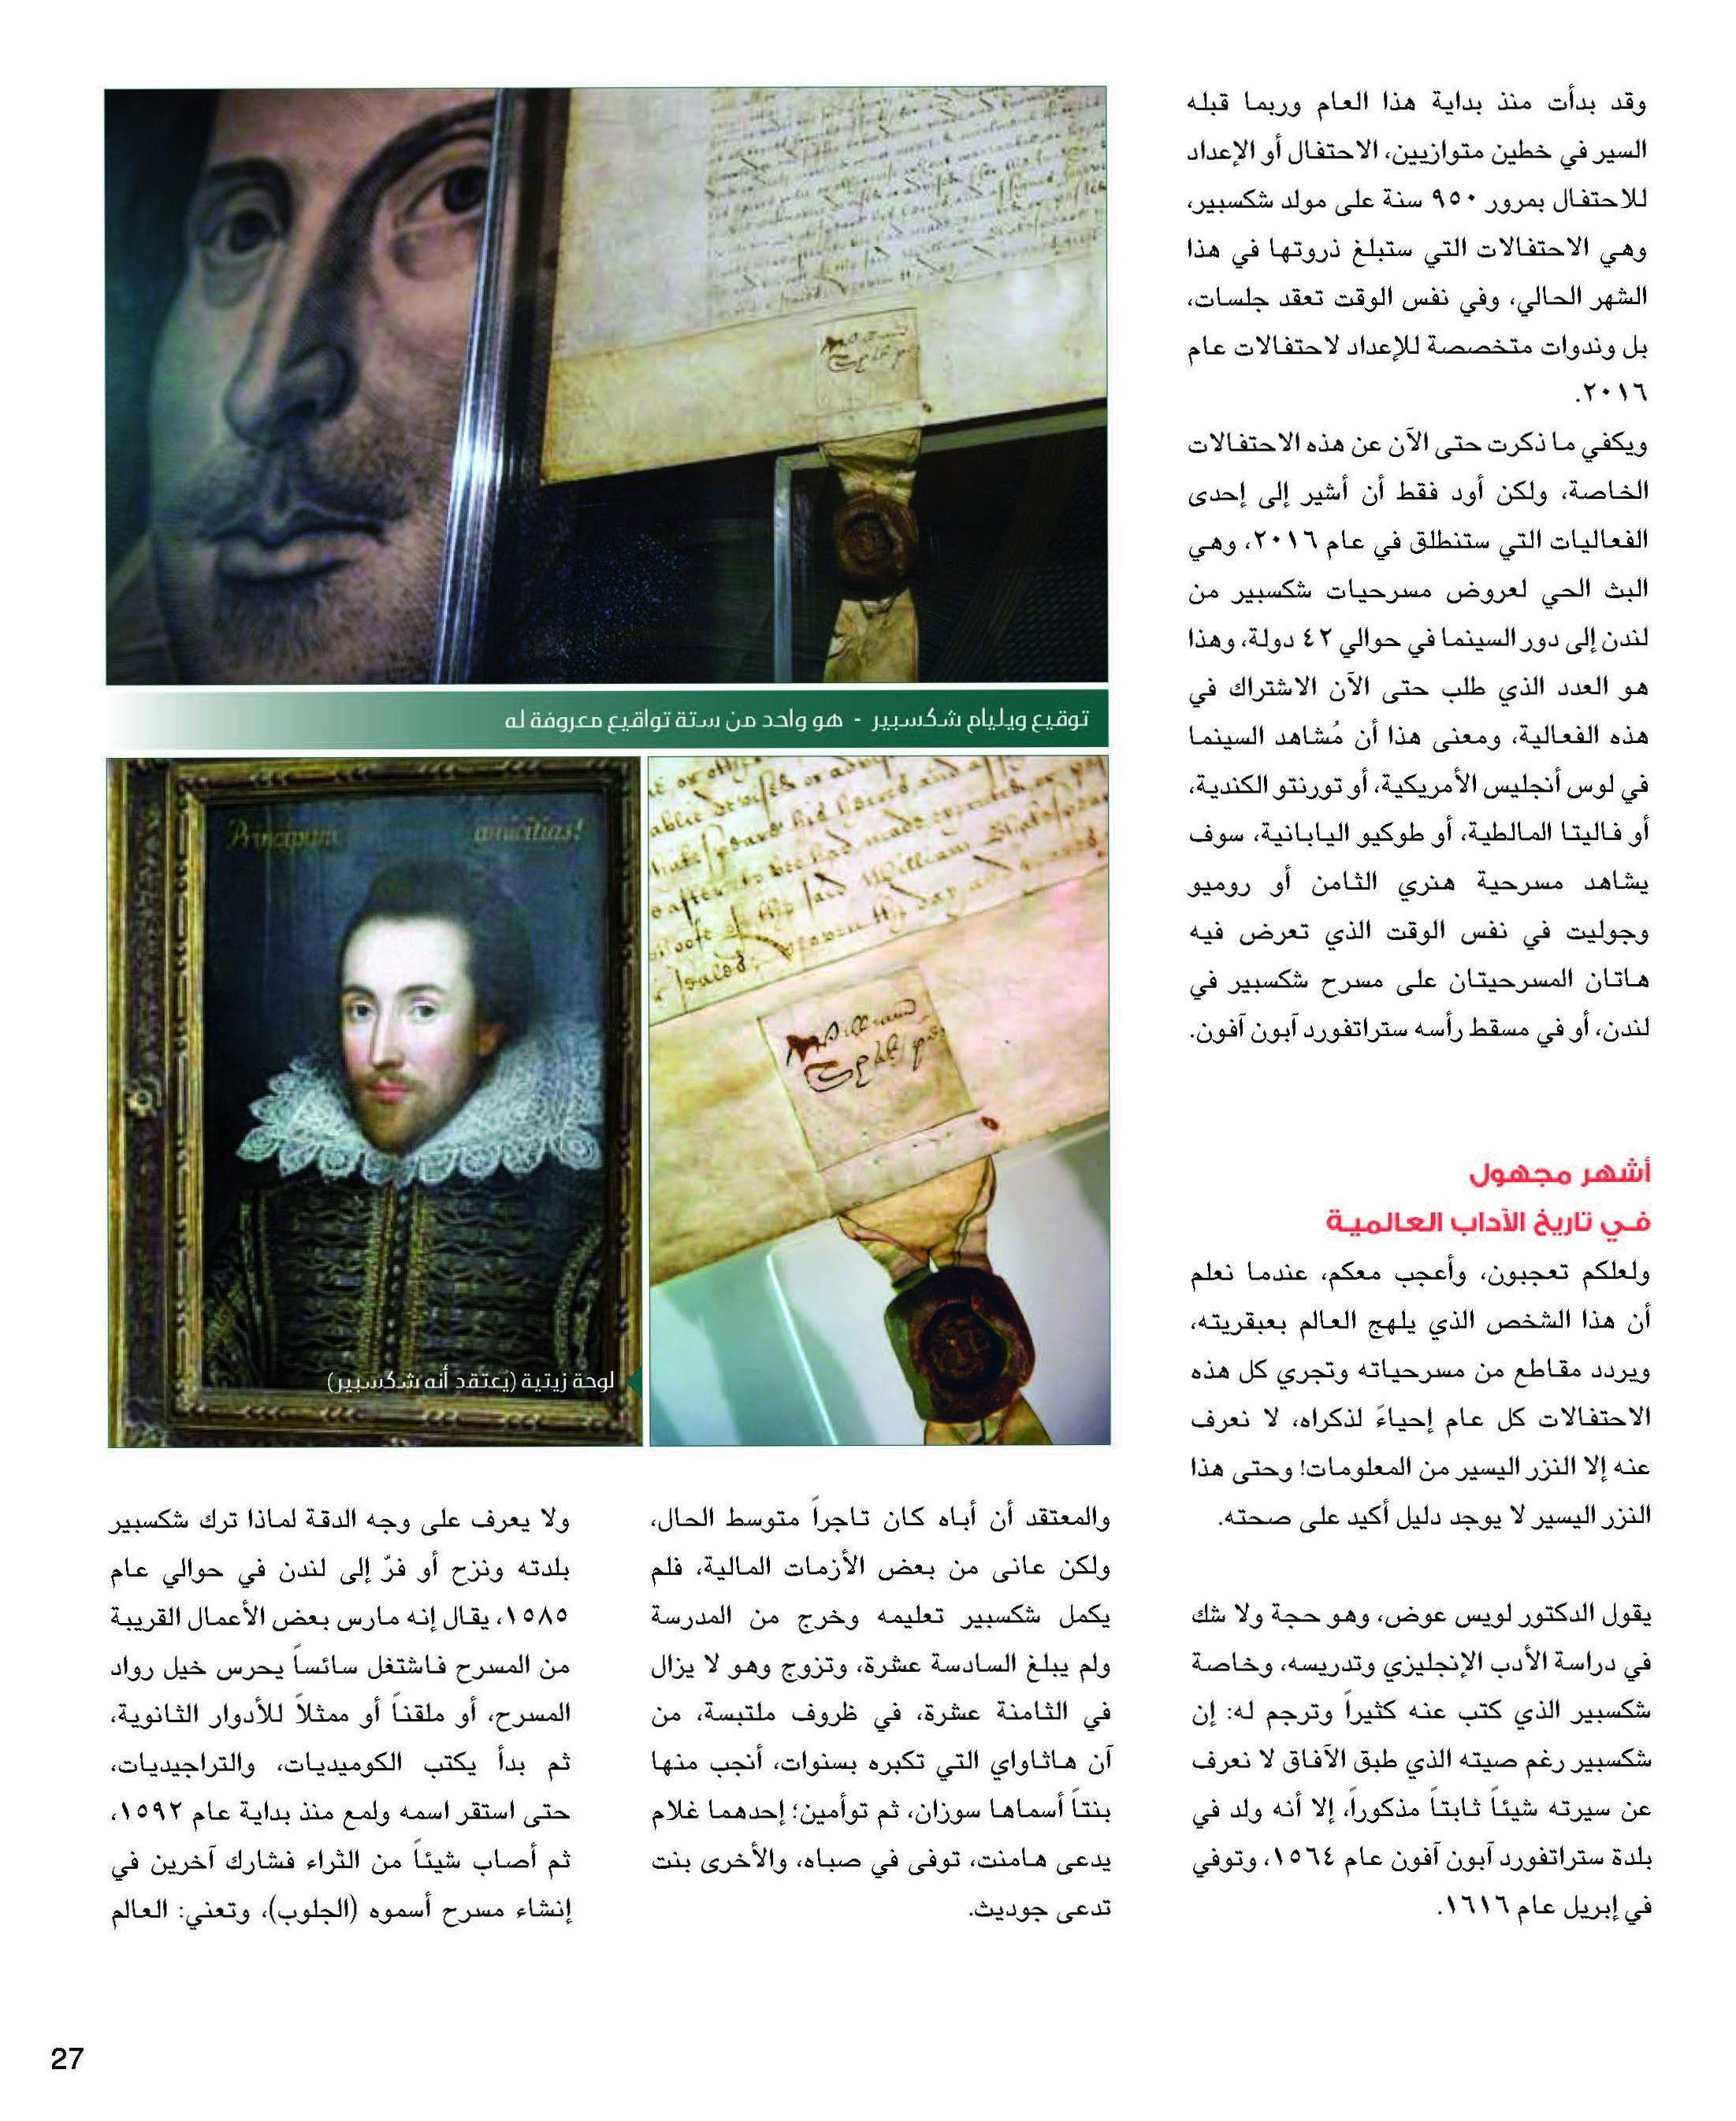 وقد بدأت منذ بداية هذا العام وربما قبله
السير في خطين متوازيين، الاحتفال أو الإعداد
للاحتفال بمرور ٩٥٠ سنة على مولد شكسبير،
وهي الاحتفالات التي ستبلغ ذروتها في هذا
الشهر الحالي، وفي نفس الوقت تعقد جلسات،
بل وندوات متخصصة للإعداد لاحتفالات عام
٢٠١٦.
ويكفي ما ذكرت حتى الآن عن هذه الاحتفالات
الخاصة، ولكن أود فقط أن أشير إلى إحدى
الفعاليات التي ستنطلق في عام ٢٠١٦، وهي
البث الحي لعروض مسرحيات شكسبير من
لندن إلى دور السينما في حوالي ٤٢ دولة، وهذا
هو العدد الذي طلب حتى الآن الاشتراك في
هذه الفعالية، ومعنى هذا أن مُشاهد السينما
في لوس أنجليس الأمريكية، أو تورنتو الكندية،
أو فاليتا المالطية، أو طوكيو اليابانية، سوف
يشاهد مسرحية هنري الثامن أو روميو
وجوليت في نفس الوقت الذي تعرض فيه
هاتان المسرحيتان على مسرح شكسبير في
لندن، أو في مسقط رأسه ستراتفورد آبون آفون.
أشهر مجهول
في تاريخ الآداب العالمية
ولعلكم تعجبون، وأعجب معكم، عندما نعلم
أن هذا الشخص الذي يلهج العالم بعبقريته،
ويردد مقاطع من مسرحياته وتجري كل هذه
الاحتفالات كل عام إحياءً لذكراه، لا نعرف
عنه إلا النزر اليسير من المعلومات! وحتى هذا
النزر اليسير لا يوجد دليل أكيد على صحته.
يقول الدكتور لويس عوض، وهو حجة ولا شك
في دراسة الأدب الإنجليزي وتدريسه، وخاصة
شكسبير الذي كتب عنه كثيراً وترجم له: إن
شكسبير رغم صيته الذي طبق الآفاق لا نعرف
عن سيرته شيئاً ثابتاً مذكوراً، إلا أنه ولد في
بلدة ستراتفورد آبون آفون عام ١٥٦٤، وتوفي
في إبريل عام ١٦١٦.
توقيع ويليام شكسبير - هو واحد من ستة تواقيع معروفة له
Principum amicitias!
لوحة زيتية (يُعتقد أنه شكسبير)
والمعتقد أن أباه كان تاجراً متوسط الحال،
ولكن عانى من بعض الأزمات المالية، فلم
يكمل شكسبير تعليمه وخرج من المدرسة
ولم يبلغ السادسة عشرة، وتزوج وهو لا يزال
في الثامنة عشرة، في ظروف ملتبسة، من
آن هاثاواي التي تكبره بسنوات، أنجب منها
بنتاً أسماها سوزان، ثم توأمين؛ إحدهما غلام
يدعى هامنت، توفى في صباه، والأخرى بنت
تدعى جوديث.
ولا يعرف على وجه الدقة لماذا ترك شكسبير
بلدته ونزح أو فرّ إلى لندن في حوالي عام
١٥٨٥، يقال إنه مارس بعض الأعمال القريبة
من المسرح فاشتغل سائساً يحرس خيل رواد
المسرح، أو ملقناً أو ممثلاً للأدوار الثانوية،
ثم بدأ يكتب الكوميديات، والتراجيديات،
حتى استقر اسمه ولمع منذ بداية عام ١٥٩٢،
ثم أصاب شيئاً من الثراء فشارك آخرين في
إنشاء مسرح أسموه (الجلوب)، وتعني: العالم
27